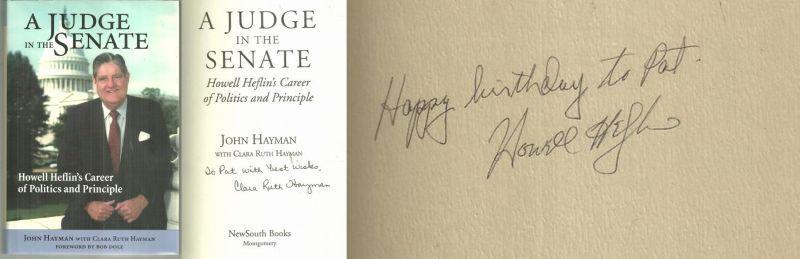 A JUDGE
IN THE SENATE
Howell Heflin's Career
of Politics and Principle
JOHN HAYMAN WITH CLARA RUTH HAYMAN
FOREWORD BY BOB DOLE
A JUDGE
IN THE
SENATE
Howell Heflin's Career
of Politics and Principle
JOHN HAYMAN
WITH CLARA RUTH HAYMAN
To Pat with best wishes,
Clara Ruth Hayman
NewSouth Books
Montgomery
Happy birthday to Pat.
Howell Heflin